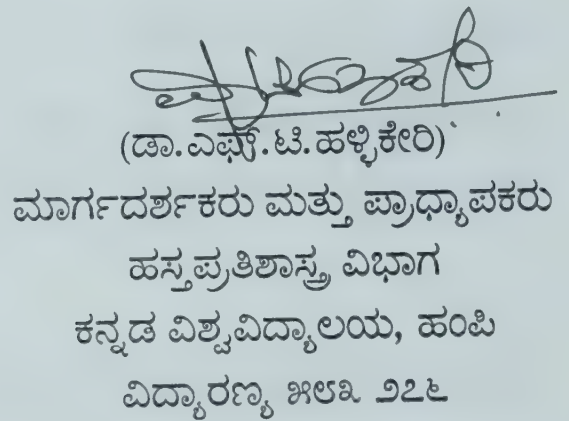 (ಡಾ.ಎಫ್.ಟಿ.ಹಳ್ಳಿಕೇರಿ)
ಮಾರ್ಗದರ್ಶಕರು ಮತ್ತು ಪ್ರಾಧ್ಯಾಪಕರು
ಹಸ್ತಪ್ರತಿಶಾಸ್ತ್ರ ವಿಭಾಗ
ಕನ್ನಡ ವಿಶ್ವವಿದ್ಯಾಲಯ, ಹಂಪಿ
ವಿದ್ಯಾರಣ್ಯ ೫೮೩ ೨೭೬